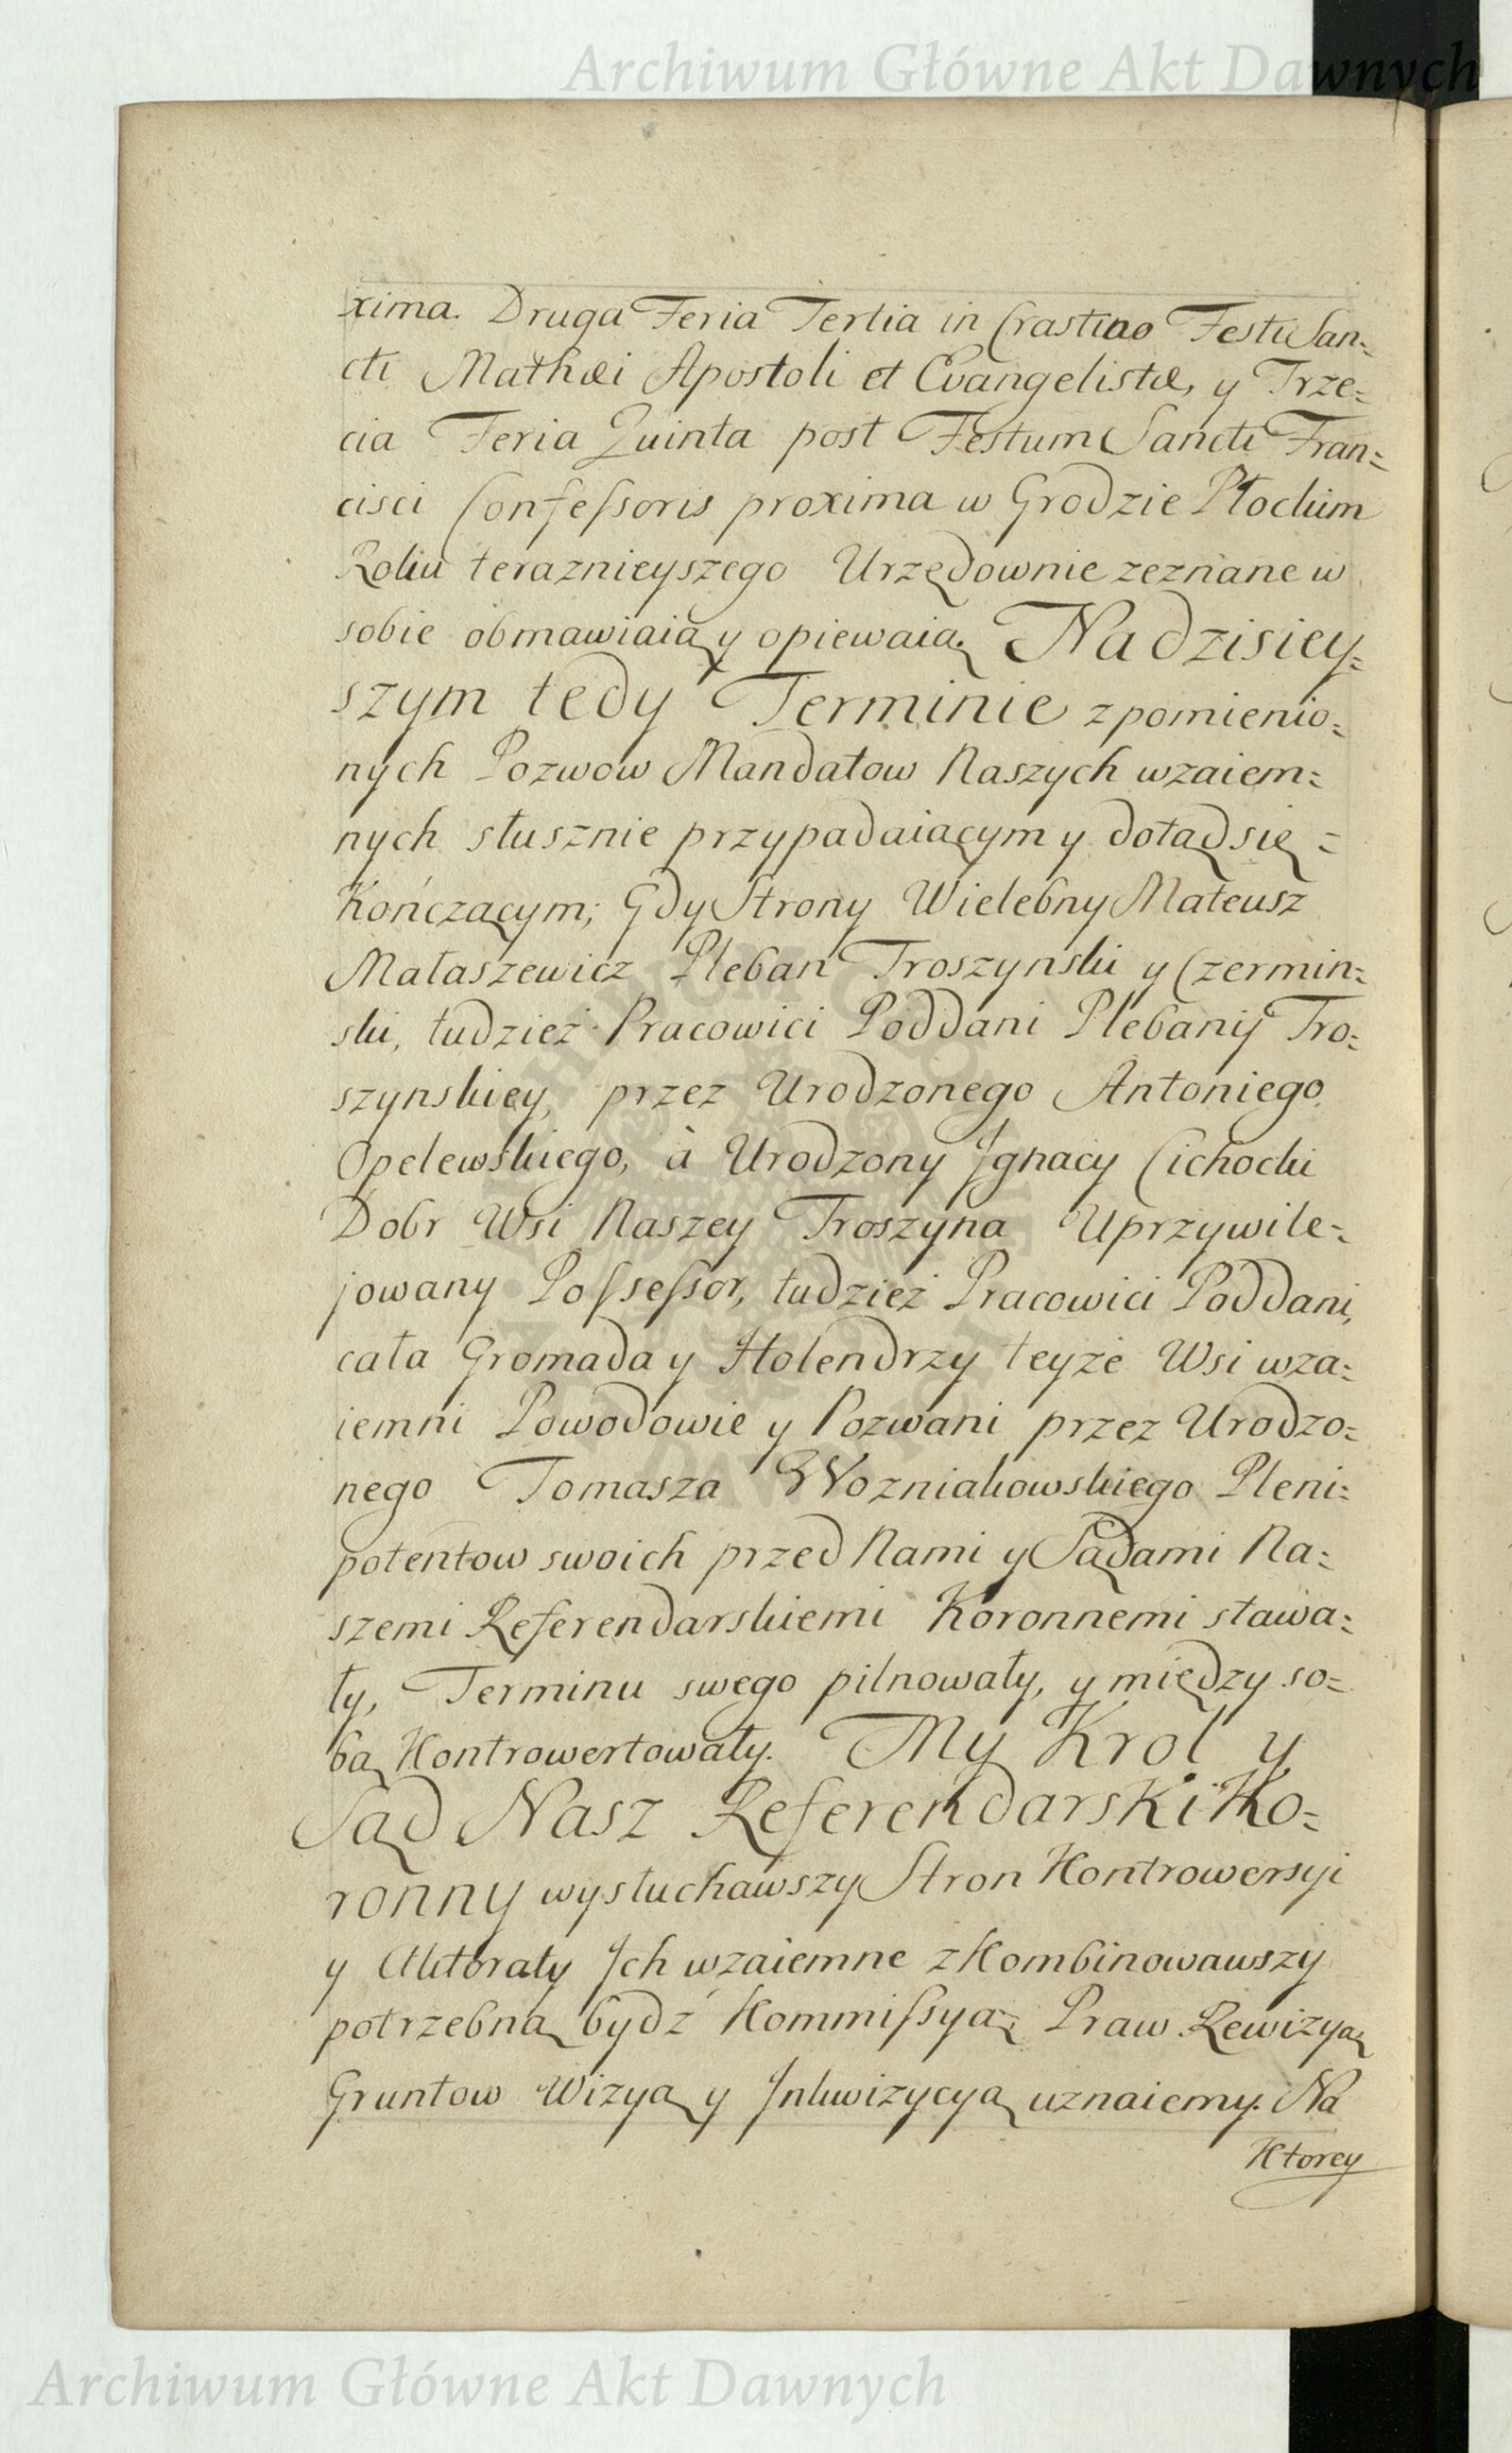 Archiwum Główne Akt Dawnych
xima. Druga Feria Tertia in Crastino Festi San=
cti Mathæi Apostoli et Evangelistæ, y Trze=
cia Feria Quinta post Festum Sancti Fran=
cisci Confeſsoris proxima w Grodzie Płockim
Roku teraznieyszego Urzędownie zeznane w
sobie obmawiaią y opiewaią. Na dzisiey=
szym tedy Terminie z pomienio=
nych Pozwow Mandatow Naszych wzaiem=
nych słusznie przypadaiącym y dotąd się =
Kończącym; Gdy Strony Wielebny Mateusz
Mataszewicz Pleban Troszynski y Czermin=
ski, tudzież Pracowici Poddani Plebanij Tro=
szynskiey, przez Urodzonego Antoniego
Opelewskiego, à Urodzony Jgnacy Cichocki
Dobr Wsi Naszey Troszyna Uprzywile=
jowany Poſseſsor, tudzież Pracowici Poddani,
cała Gromada y Holendrzy teyże Wsi wza=
iemni Powodowie y Pozwani przez Urodzo=
nego Tomasza Wozniakowskiego Pleni=
potentow swoich przed Nami y Sądami Na=
szemi Referendarskiemi Koronnemi stawa=
ły, Terminu swego pilnowały, y między so=
bą Kontrowertowały. My Krol y
Sąd Nasz Referendarski Ko=
ronny wysłuchawszy Stron Kontrowersyi
y Aktoraty Jch wzaiemne z Kombinowawszy
potrzebną bydź Kommiſsyą; Praw Rewizyą
Gruntow Wizyą y Jnkwizycyą uznaiemy. Na
Ktorey
Archiwum Główne Akt Dawnych